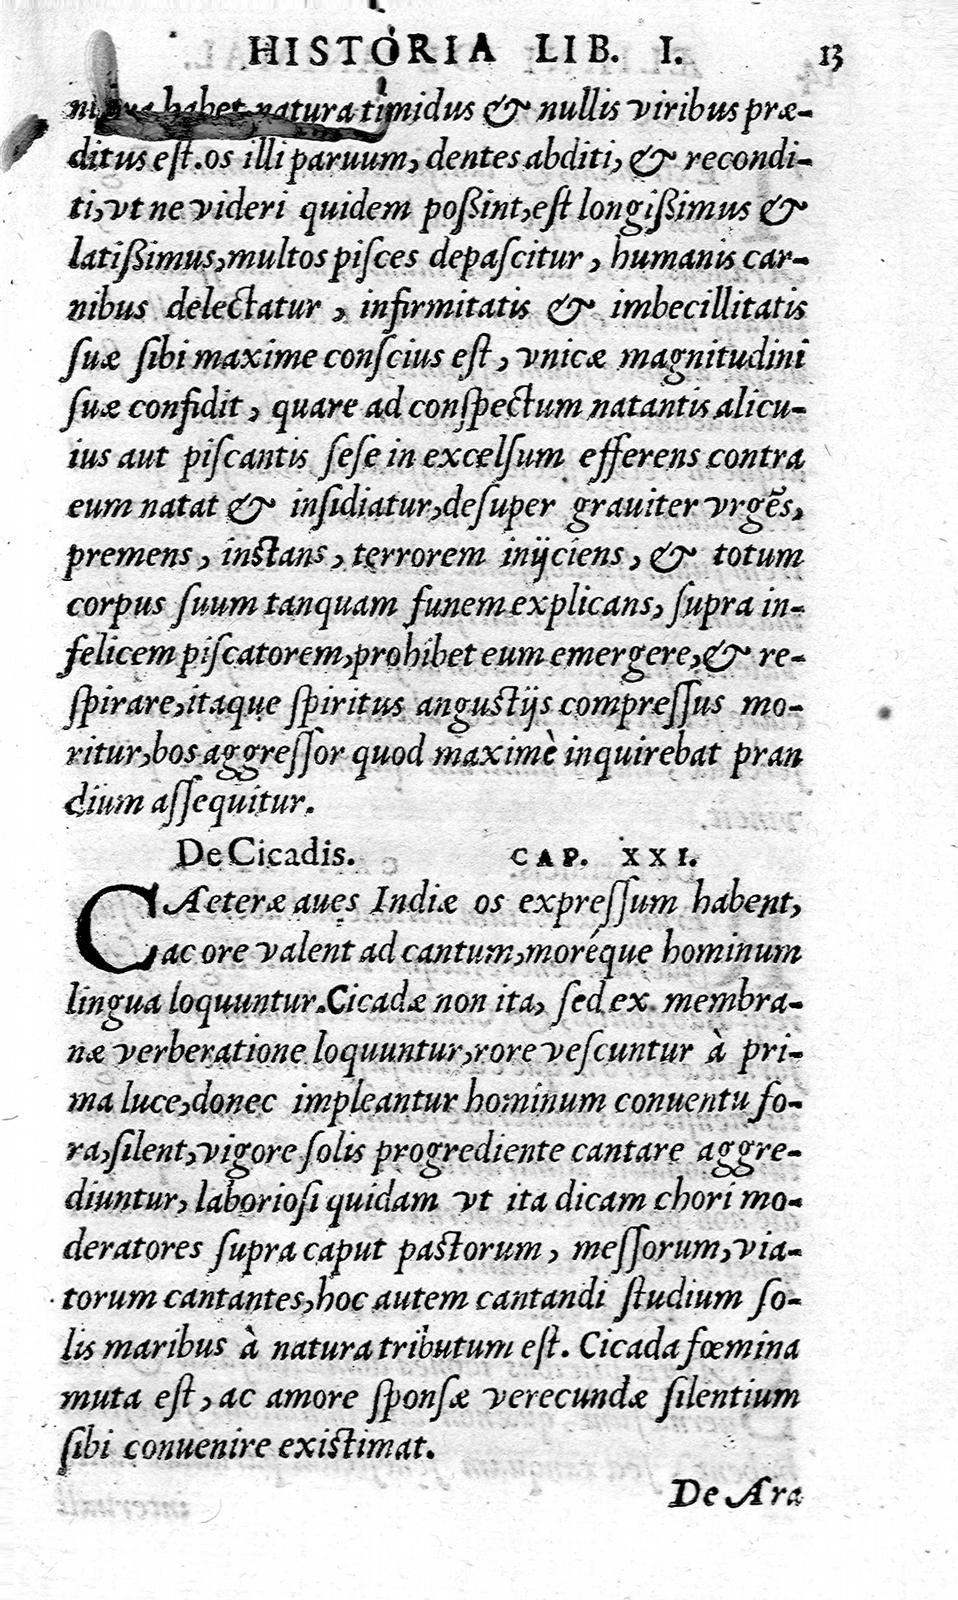 HISTORIA LIB. I. 13
habet natura timidus & nullis viribus præ-
ditus eſt. os illi paruum, dentes abditi, & recondi-
ti, vt ne videri quidem poßint, eſt longißimus &
latißimus, multos piſces depaſcitur, humanis car-
nibus delectatur, infirmitatis & imbecillitatis
ſuæ ſibi maxime conſcius eſt, vnicæ magnitudini
ſuæ confidit, quare ad conſpectum natantis alicu-
ius aut piſcantis ſeſe in excelſum efferens contra
eum natat & inſidiatur, deſuper grauiter vrgẽs,
premens, inſtans, terrorem inijciens, & totum
corpus ſuum tanquam funem explicans, ſupra in-
felicem piſcatorem, prohibet eum emergere, & re-
ſpirare, itaque ſpiritus anguſtijs compreſſus mo-
ritur, bos aggreſſor quod maximè inquirebat pran
dium aſſequitur.
De Cicadis. CAP. XXI.
CAeteræ aues Indiæ os expreſſum habent,
ac ore valent ad cantum, moréque hominum
lingua loquuntur. Cicadæ non ita, ſed ex membra-
næ verberatione loquuntur, rore veſcuntur à pri-
ma luce, donec impleantur hominum conuentu fo-
ra, ſilent, vigore ſolis progrediente cantare aggre-
diuntur, laborioſi quidam vt ita dicam chori mo-
deratores ſupra caput paſtorum, meſſorum, via-
torum cantantes, hoc autem cantandi ſtudium ſo-
lis maribus à natura tributum eſt. Cicada fœmina
muta eſt, ac amore ſponſæ verecundæ ſilentium
ſibi conuenire exiſtimat.
De Ara